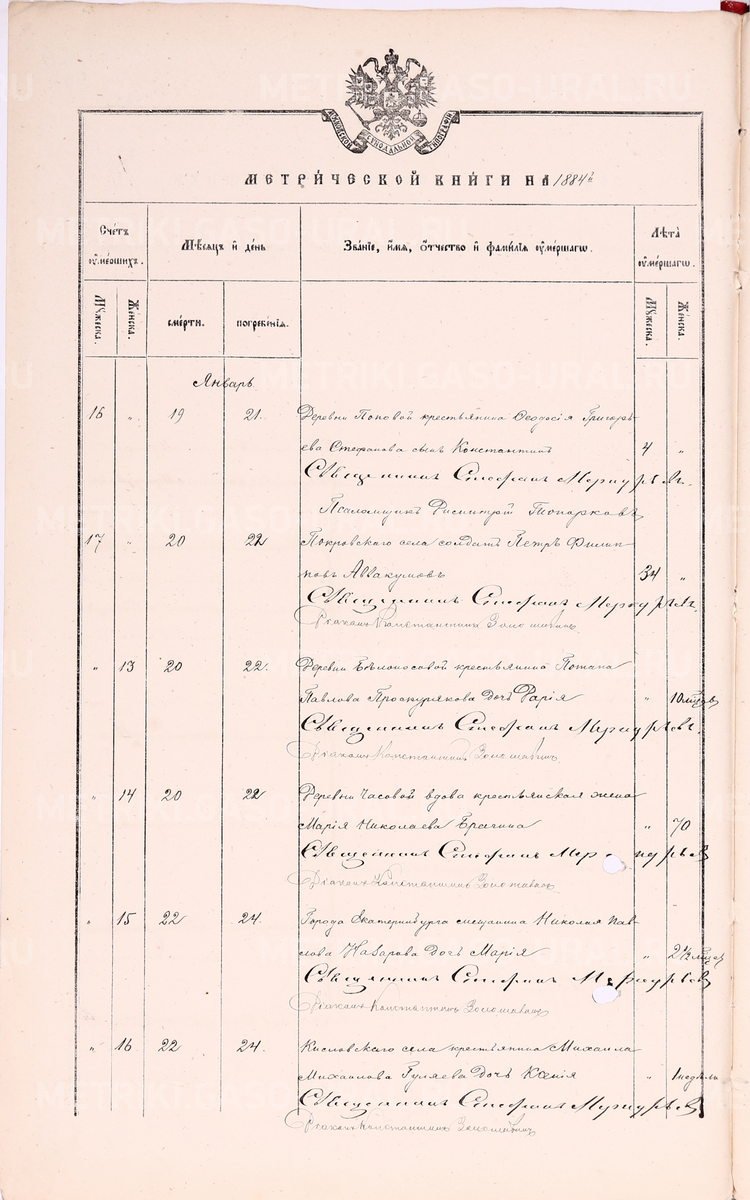 МЕТРИЧЕСКОЙ КНИГИ НА 1884 г.
Счетъ умершихъ.
Мѣсяцъ и день
Званіе, имя, отчество и фамилія умершагѡ.
Лѣта умершагѡ.
Мужеска.
Женска.
смерти.
погребенія.
Мужеска.
Женска.
Январь
16 „ 19 21. Деревни Поповой крестьянина Ѳеодосія Григорь-
ева Стефанова сынъ Константинъ 4 „
Священникъ Стефанъ Меркурьевъ.
Псаломщикъ Димитрій Топорковъ
17 „ 20 22 Покровскаго села солдатъ Петръ Филип-
повъ Аввакумовъ 34 „
Священникъ Стефанъ Меркурьевъ.
Діаконъ Константинъ
„ 13 20 22. Деревни Бѣлоносовой крестьянина Потапа
Павлова Проскурякова дочь „ 10 мѣсяц
Священникъ Стефанъ Меркурьевъ.
Діаконъ Константинъ
„ 14 20 22 Деревни Часовой вдова крестьянская жена
Марія Николаева „ 70
Священникъ Стефанъ Меркурьев
Діаконъ Константинъ
„ 15 22 24. Города Екатеринбурга мещанина Николая Пав-
лова Назарова дочь Марія „ 2½ мѣсяц
Священникъ Стефанъ Меркурьев
Діаконъ Константинъ
„ 16 22 24. Кисловскаго села крестьянина Михаила
Михайлова Гуляева дочь Ксенія „ 1 недѣли
Священникъ Стефанъ Меркурьев
Діаконъ Константинъ